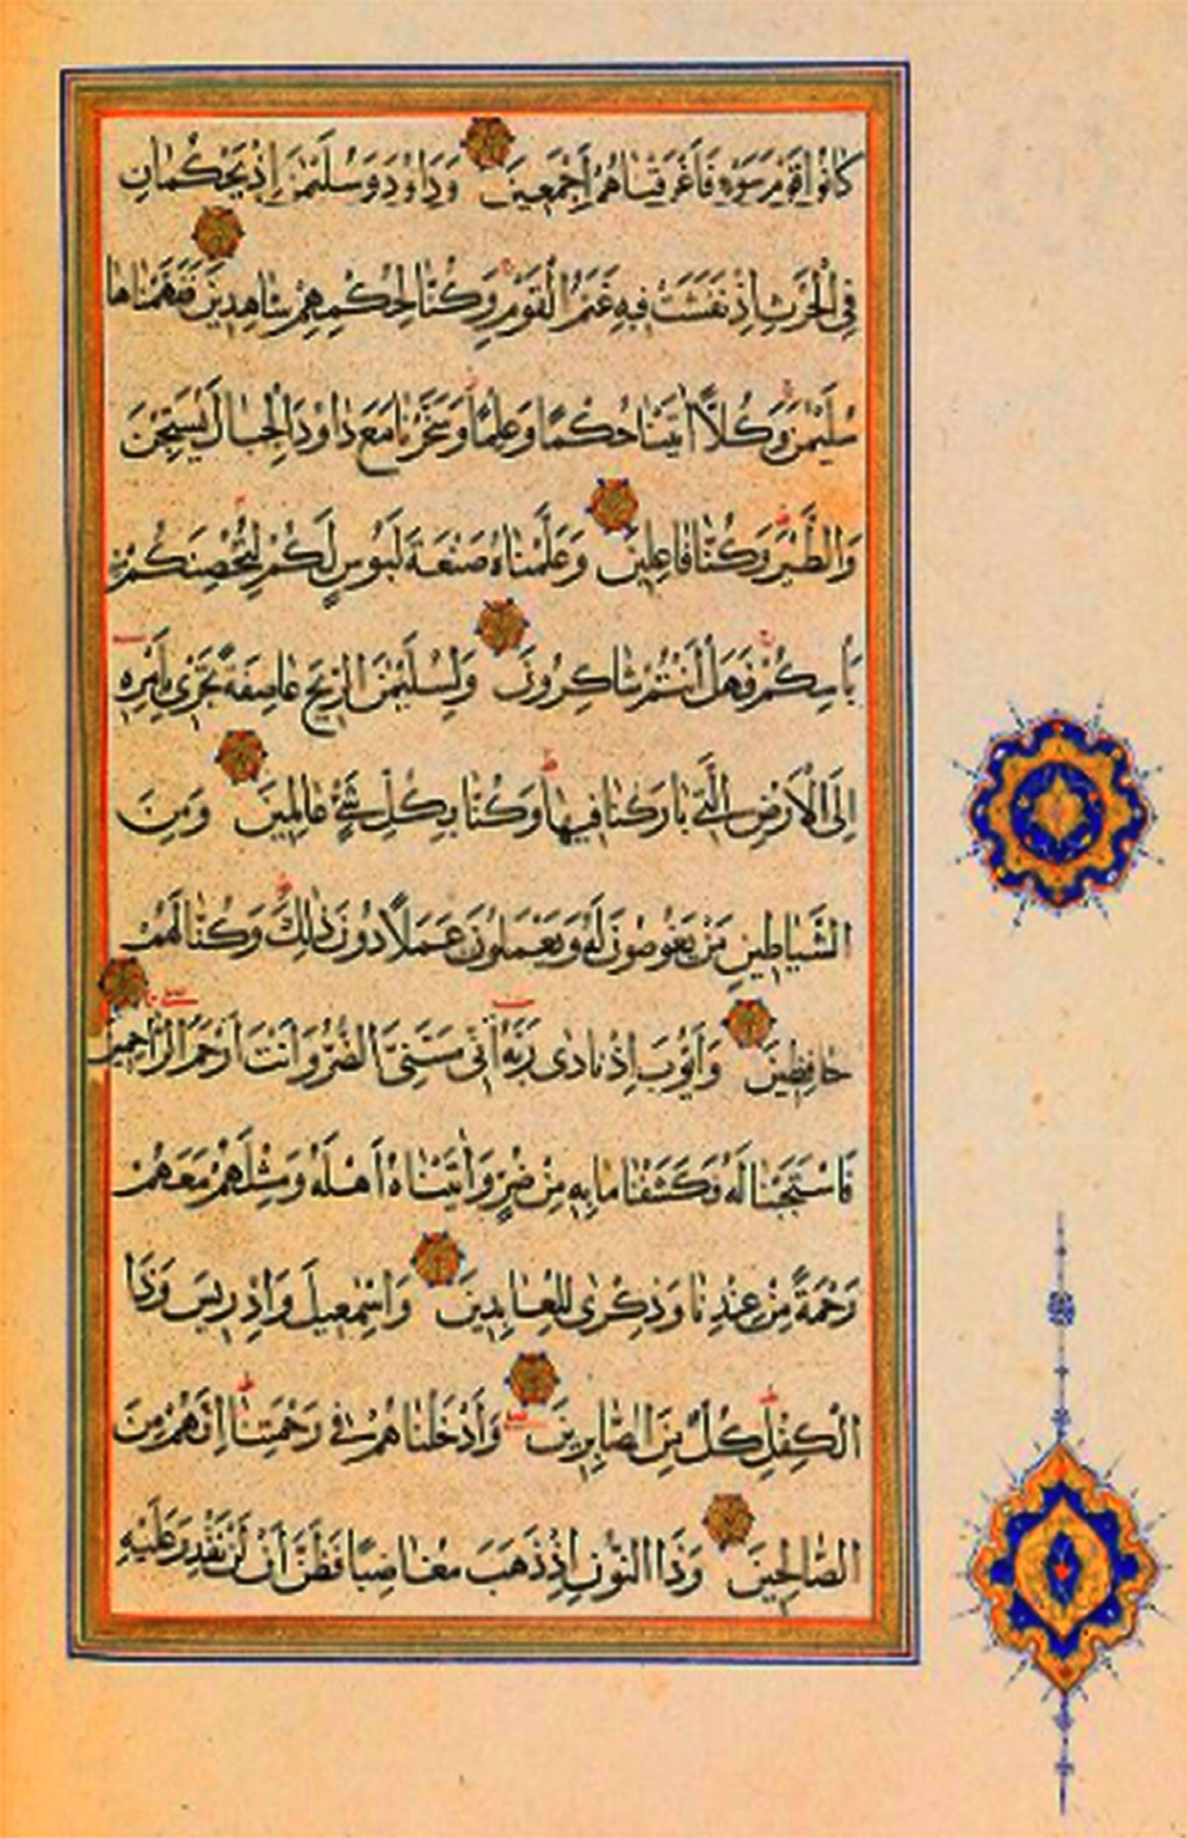 كَانُوا قَوْمَ سَوْءٍ فَأَغْرَقْنَاهُمْ أَجْمَعِينَ وَدَاوُدَ وَسُلَيْمٰنَ إِذْ يَحْكُمَانِ
فِي الْحَرْثِ إِذْ نَفَشَتْ فِيهِ غَنَمُ الْقَوْمِ وَكُنَّا لِحُكْمِهِمْ شَاهِدِينَ فَفَهَّمْنَاهَا
سُلَيْمٰنَ وَكُلًّا اٰتَيْنَا حُكْمًا وَعِلْمًا وَسَخَّرْنَا مَعَ دَاوُدَ الْجِبَالَ يُسَبِّحْنَ
وَالطَّيْرَ وَكُنَّا فَاعِلِينَ وَعَلَّمْنَاهُ صَنْعَةَ لَبُوسٍ لَكُمْ لِتُحْصِنَكُمْ مِنْ
بَأْسِكُمْ فَهَلْ أَنْتُمْ شَاكِرُونَ وَلِسُلَيْمٰنَ الرِّيحَ عَاصِفَةً تَجْرِي بِأَمْرِهِ
إِلَى الْأَرْضِ الَّتِي بَارَكْنَا فِيهَا وَكُنَّا بِكُلِّ شَيْءٍ عَالِمِينَ وَمِنَ
الشَّيَاطِينِ مَنْ يَغُوصُونَ لَهُ وَيَعْمَلُونَ عَمَلًا دُونَ ذٰلِكَ وَكُنَّا لَهُمْ
حَافِظِينَ وَأَيُّوبَ إِذْ نَادٰى رَبَّهُ أَنِّي مَسَّنِيَ الضُّرُّ وَأَنْتَ أَرْحَمُ الرَّاحِمِينَ
فَاسْتَجَبْنَا لَهُ فَكَشَفْنَا مَا بِهِ مِنْ ضُرٍّ وَاٰتَيْنَاهُ أَهْلَهُ وَمِثْلَهُمْ مَعَهُمْ
رَحْمَةً مِنْ عِنْدِنَا وَذِكْرٰى لِلْعَابِدِينَ وَإِسْمٰعِيلَ وَإِدْرِيسَ وَذَا
الْكِفْلِ كُلٌّ مِنَ الصَّابِرِينَ وَأَدْخَلْنَاهُمْ فِي رَحْمَتِنَا إِنَّهُمْ مِنَ
الصَّالِحِينَ وَذَا النُّونِ إِذْ ذَهَبَ مُغَاضِبًا فَظَنَّ أَنْ لَنْ نَقْدِرَ عَلَيْهِ